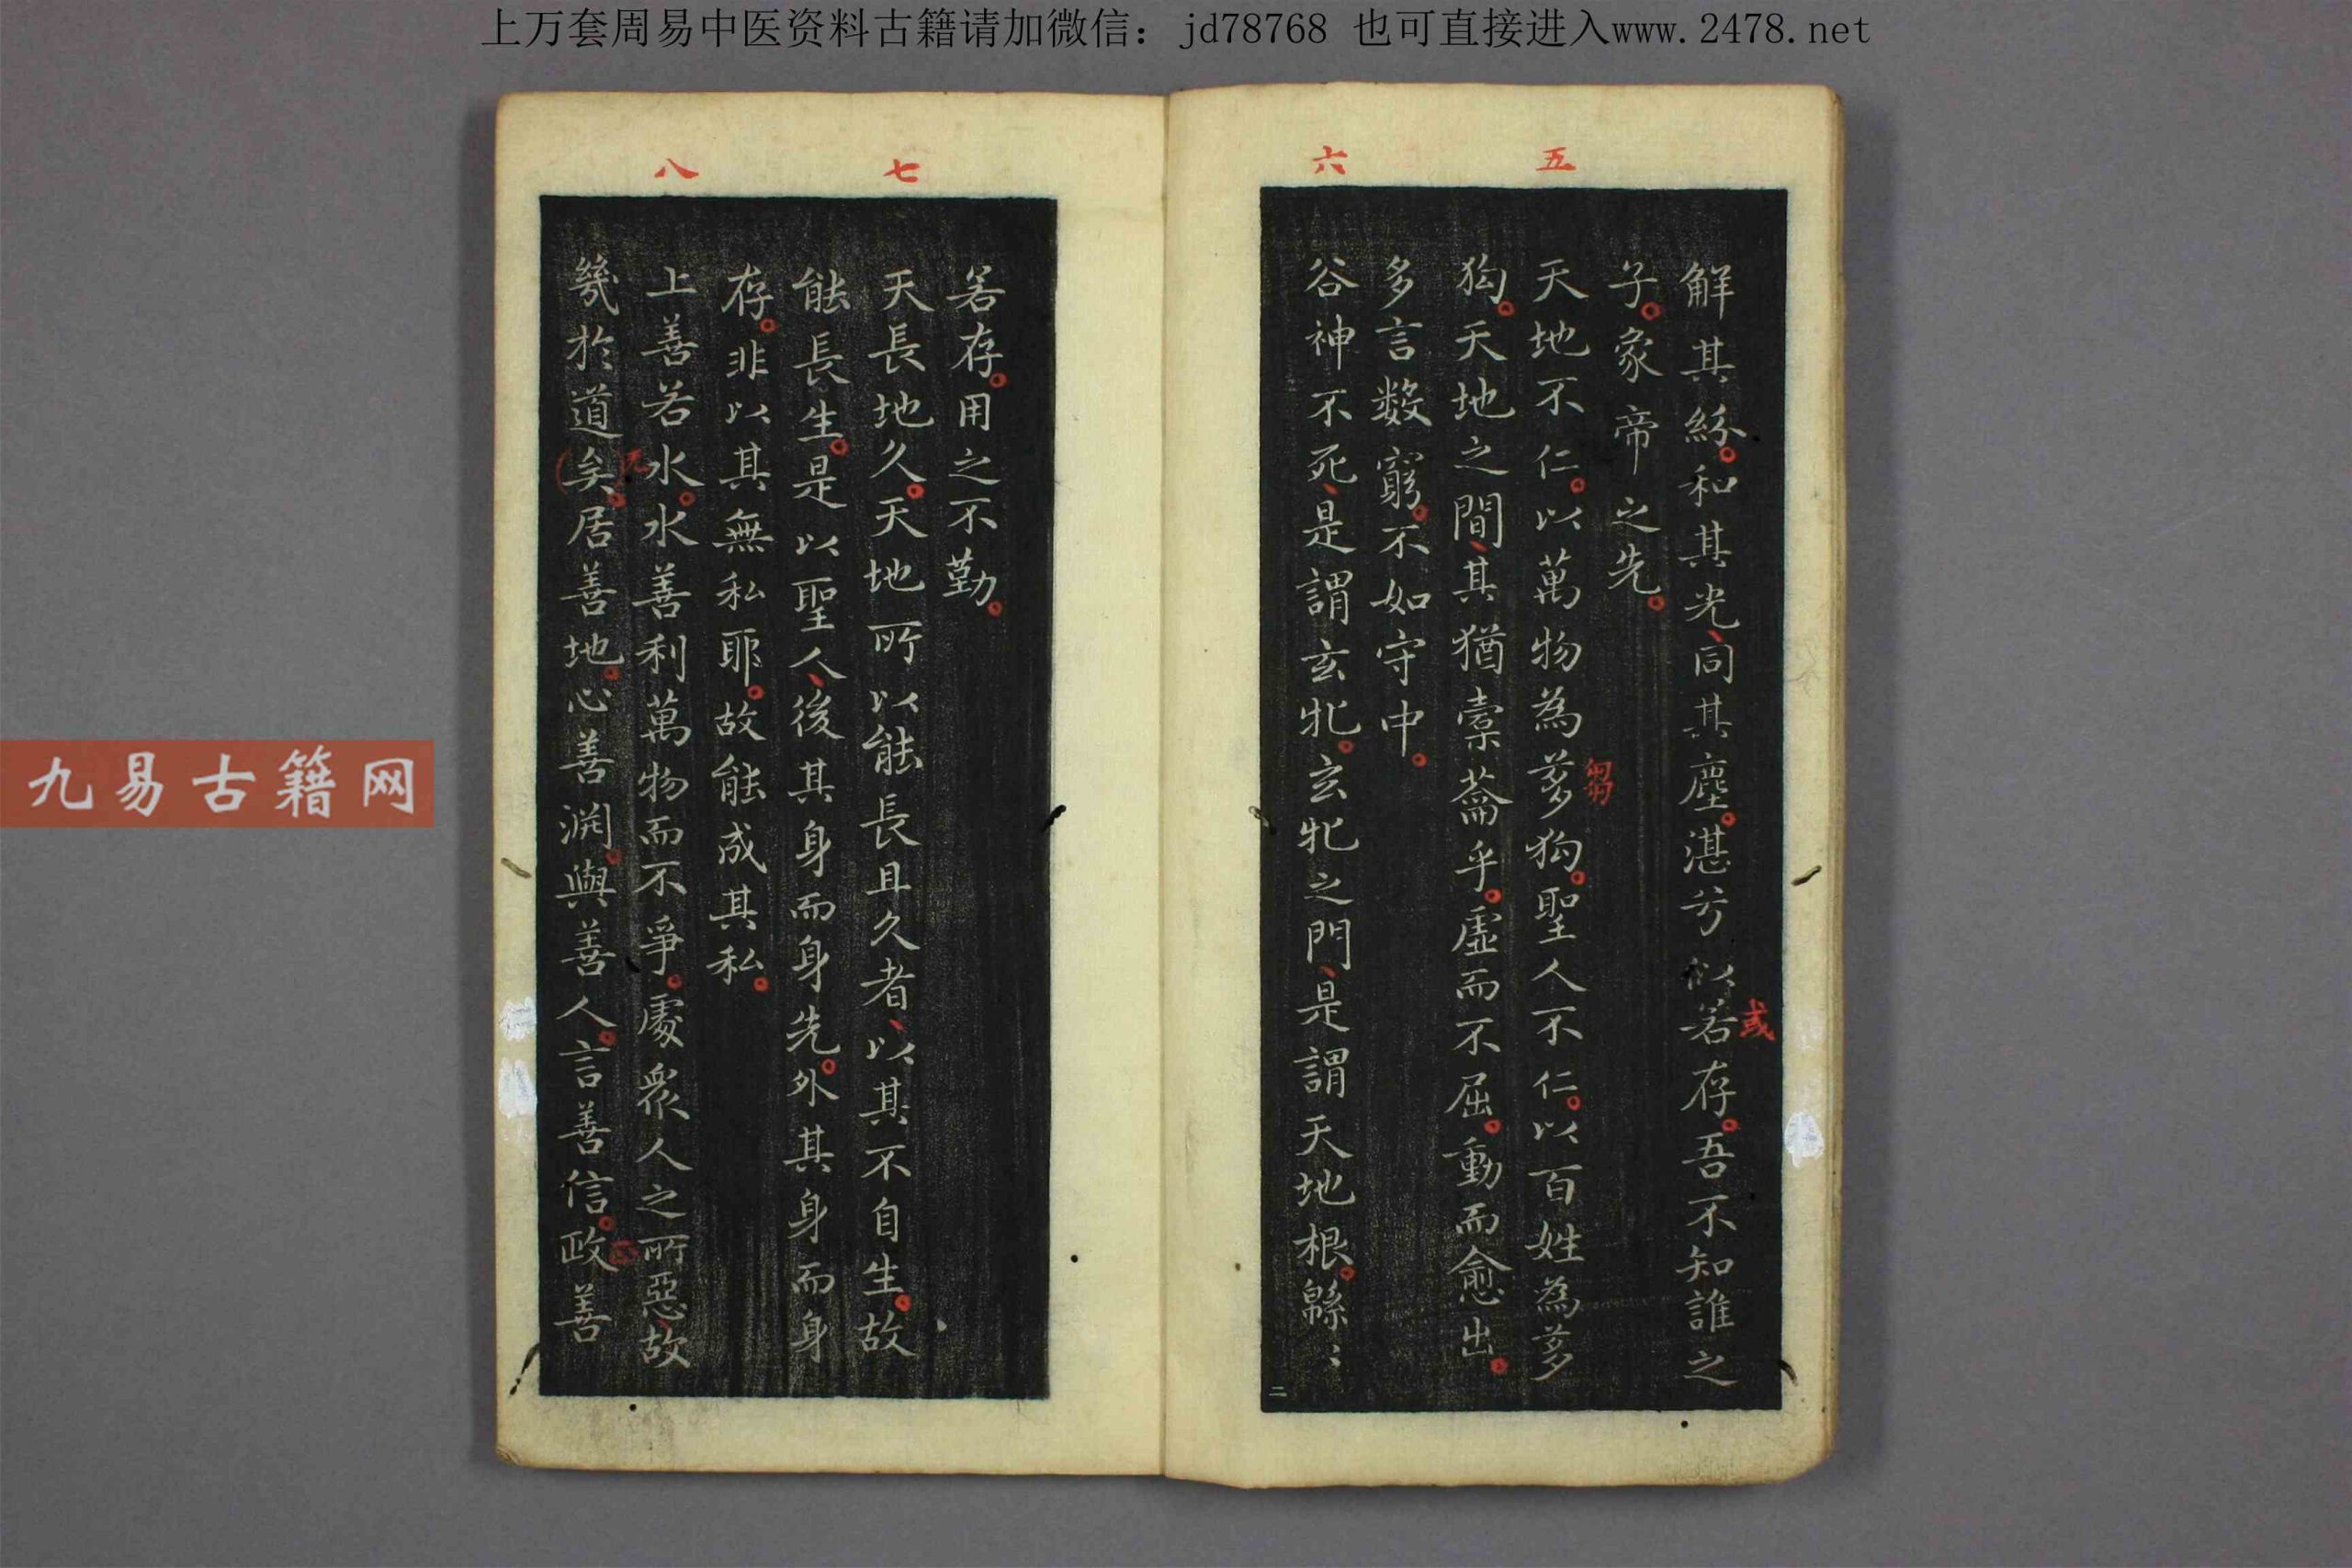 上万套周易中医资料古籍请加微信：jd78768 也可直接进入www.2478.net
九易古籍网
五
六
解其紛和其光同其塵湛兮似若存吾不知誰之
或
子象帝之先
天地不仁以萬物為芻狗聖人不仁以百姓為芻
芻
狗天地之間其猶橐籥乎虛而不屈動而愈出
多言數窮不如守中
谷神不死是謂玄牝玄牝之門是謂天地根緜〻
二
七
八
若存用之不勤
天長地久天地所以能長且久者以其不自生故
能長生是以聖人後其身而身先外其身而身
存非以其無私耶故能成其私
上善若水水善利萬物而不爭處衆人之所惡故
幾於道矣居善地心善淵與善人言善信政善